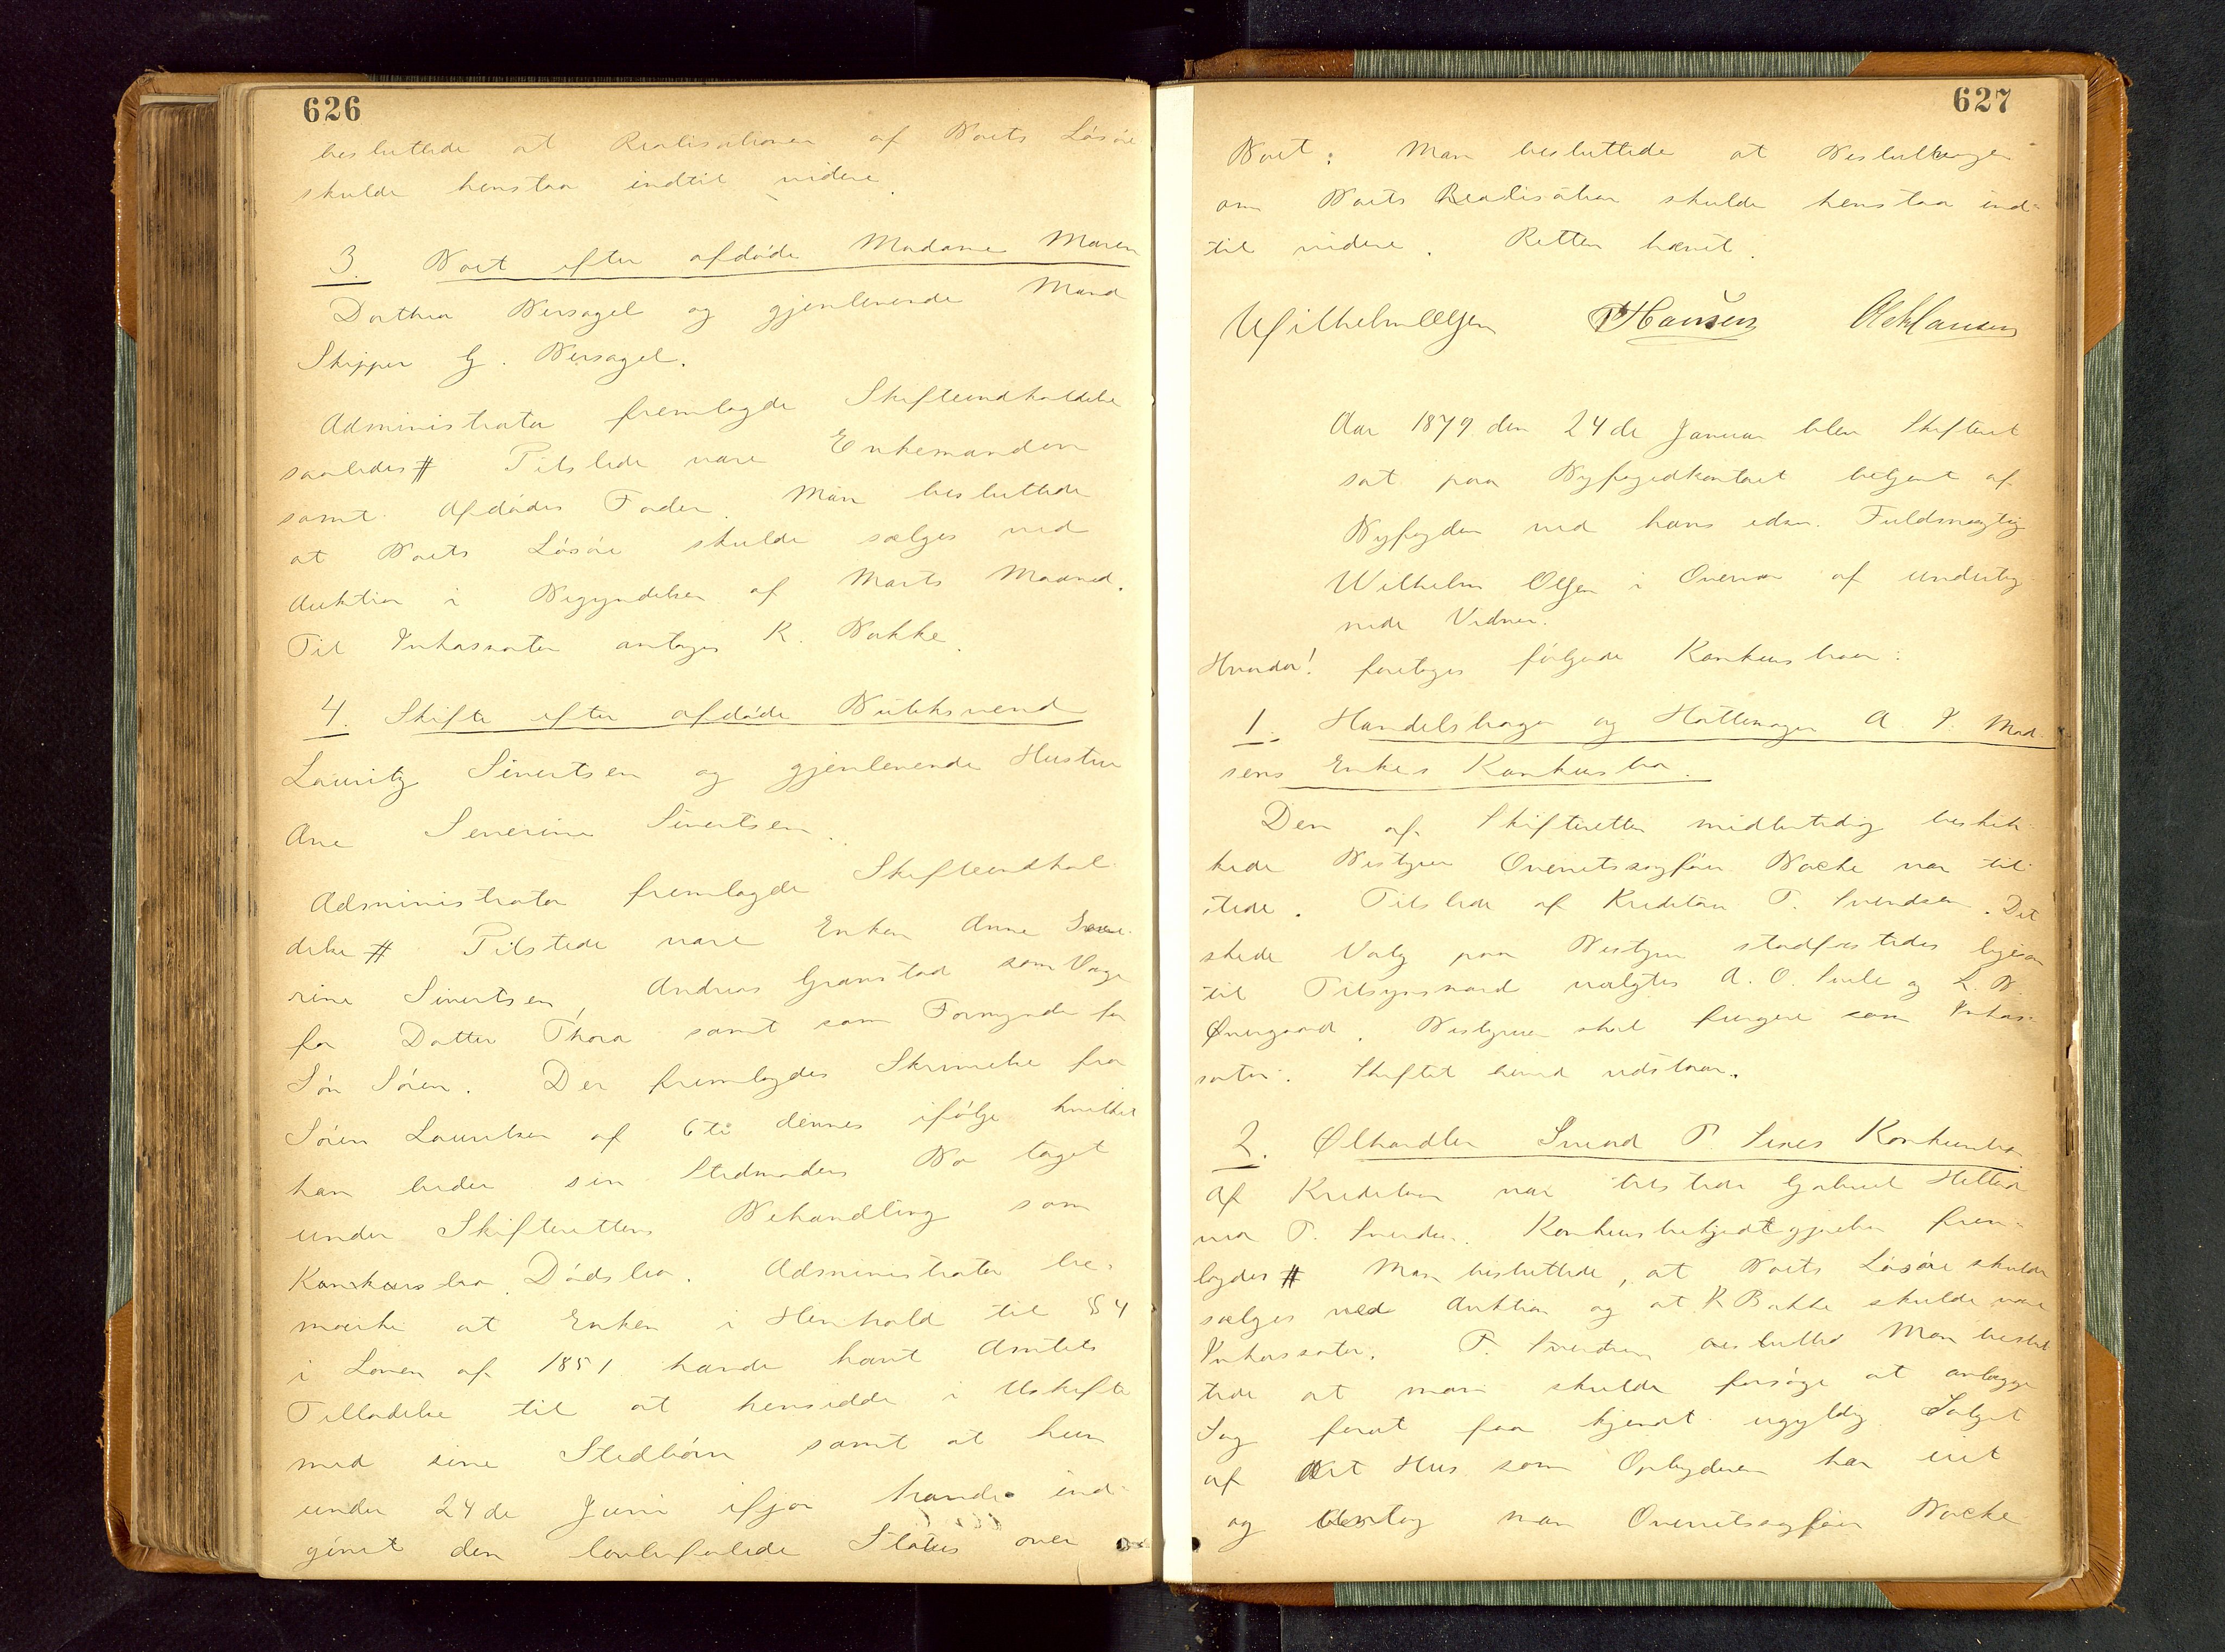 626
besluttede at Realisationen af Boets Løsøre
skulde henstaa indtil videre.
3. Boet efter afdøde Madame Maren
Dorthea Bersagel og gjenlevende Mand
Skipper G. Bersagel.
Administrator fremlagde Skifteindkaldelse
saaledes # Tilstede vare Enkemanden
samt Afdødes Fader. Man besluttede
at Boets Løsøre skulde sælges ved
Auktion i Begyndelsen af Marts Maaned.
Til Inkassator antages K. Bakke.
4. Skifte efter afdøde Butiksvend
Lauritz Sivertsen og gjenlevende Hustru
Ane Severine Sivertsen.
Administrator fremlagde Skifteindkal
delse # Tilstede vare Enken Anne Seve
rine Sivertsen, Andreas Granstad som Værge
for Datter Thora samt som Formynder for
Søn Søren. Der fremlagdes Skrivelse fra
Søren Lauritsen af 6te dennes ifølge hvilket
han beder sin Stedmoders Bo taget
under Skifterettens Behandling som
Konkursbo Dødsbo. Administrator be-
mærke at Enken i Henhold til § 4
i Loven af 1851 havde havt Amtets
Tilladelse til at hensidde i Uskifte
med sine Stedbørn samt at hun
under 24de Juni ifjor havde ind-
givet den lovbefalede Status over
627
Boet: Man besluttede at Beslutningen
om Boets Realisation skulde henstaa ind-
til videre. Retten hævet.
Wilhelm Olsen P Hansen O A Hansen
Aar 1879 den 24de Januar blev Skifteret
sat paa Byfogedkontoret betjent af
Byfogden ved hans edsv. Fuldmægtig
Wilhelm Olsen i Overvær af underteg
nede Vidner.
Hvorda! foretoges følgende Konkursboer:
1. Handelsbager og Hattemager A. I. Mad-
sens Enkes Konkursbo.
Den af Skifteretten midlertidig beskik-
kede Bestyrer Overretssagfører Backe var til
stede. Tilstede af Kreditorer T. Svendsen. Det
skede Valg paa Bestyrer stadfæstedes ligesom
til Tilsynsmænd valgtes A. O. og L. B.
Øvergaard. Bestyreren skal fungere som Inkas-
sator. Skiftet herved udstaar.
2. Ølhandler Svend T. Konkursbo
Af Kreditorer var tilstede Gabriel
ved T. Svendsen. Konkursbekjendtgjørelsen frem-
lagdes # Man besluttede, at Boets Løsøre skulde
sælges ved Auktion og at K Bakke skulde være
Inkassator. T. Svendsen Man beslut
tede at man skulde forsøge at anlægge
Sag forat faa kjendt ugyldig Salget
af et Hus som Opbyderen har eiet
og antog man Overretssagfører Backe